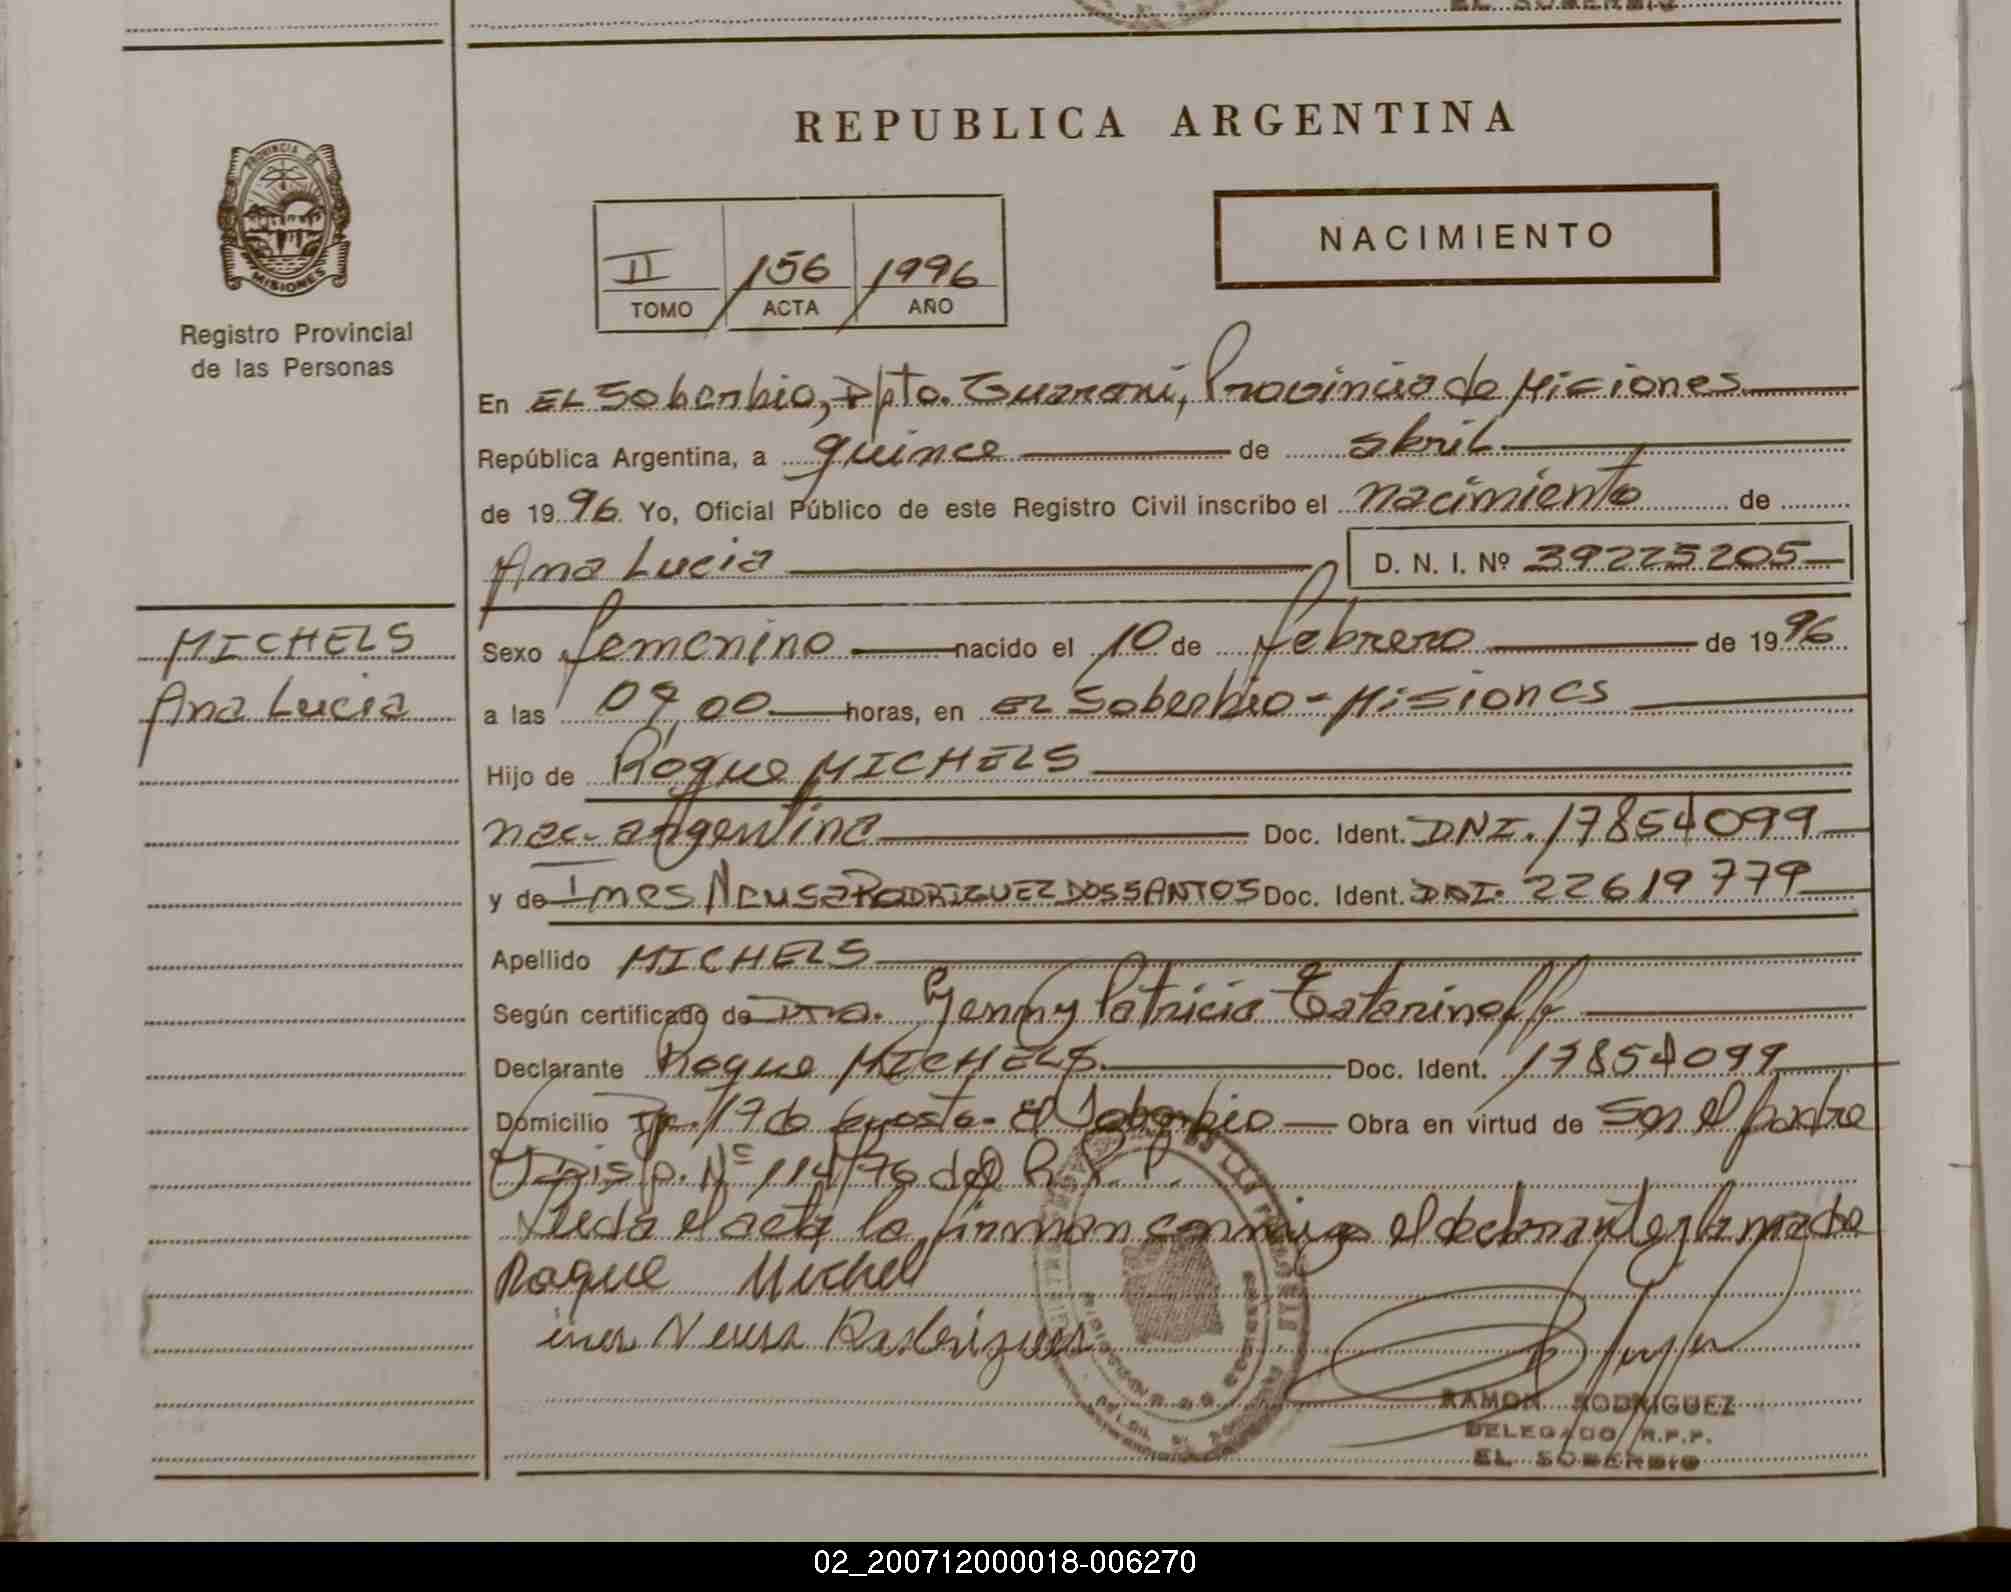 EL SOBERBIO
REPUBLICA ARGENTINA
PROVINCIA DE
MISIONES
Registro Provincial
de las Personas
II 156 1996
TOMO ACTA AÑO
NACIMIENTO
En EL Soberbio, Dpto. Guaraní, Provincia de Misiones
República Argentina, a quince de abril
de 1996 Yo, Oficial Público de este Registro Civil inscribo el nacimiento de
Ana Lucia D. N. I. Nº 39225205
MICHELS
Ana Lucia
Sexo femenino nacido el 10 de febrero de 1996
a las 09,00 horas, en EL Soberbio - Misiones
Hijo de Roque MICHELS
nac. argentina Doc. Ident. DNI. 17854099
y de Ines Neusa RODRIGUEZ DOS SANTOS Doc. Ident. DNI. 22619779
Apellido MICHELS
Según certificado de Dra. Yenny Patricia Tatarinoff
Declarante Roque MICHELS Doc. Ident. 17854099
Domicilio 17 de Agosto - El Soberbio Obra en virtud de Ser el padre
y Disp. Nº 114/76 del R. P. P.
Leida el acta la firman conmigo el declarante y la madre
Roque Michel
ines Neusa Rodriguez
RAMON RODRIGUEZ
DELEGADO R.P.P.
EL SOBERBIO
02_200712000018-006270